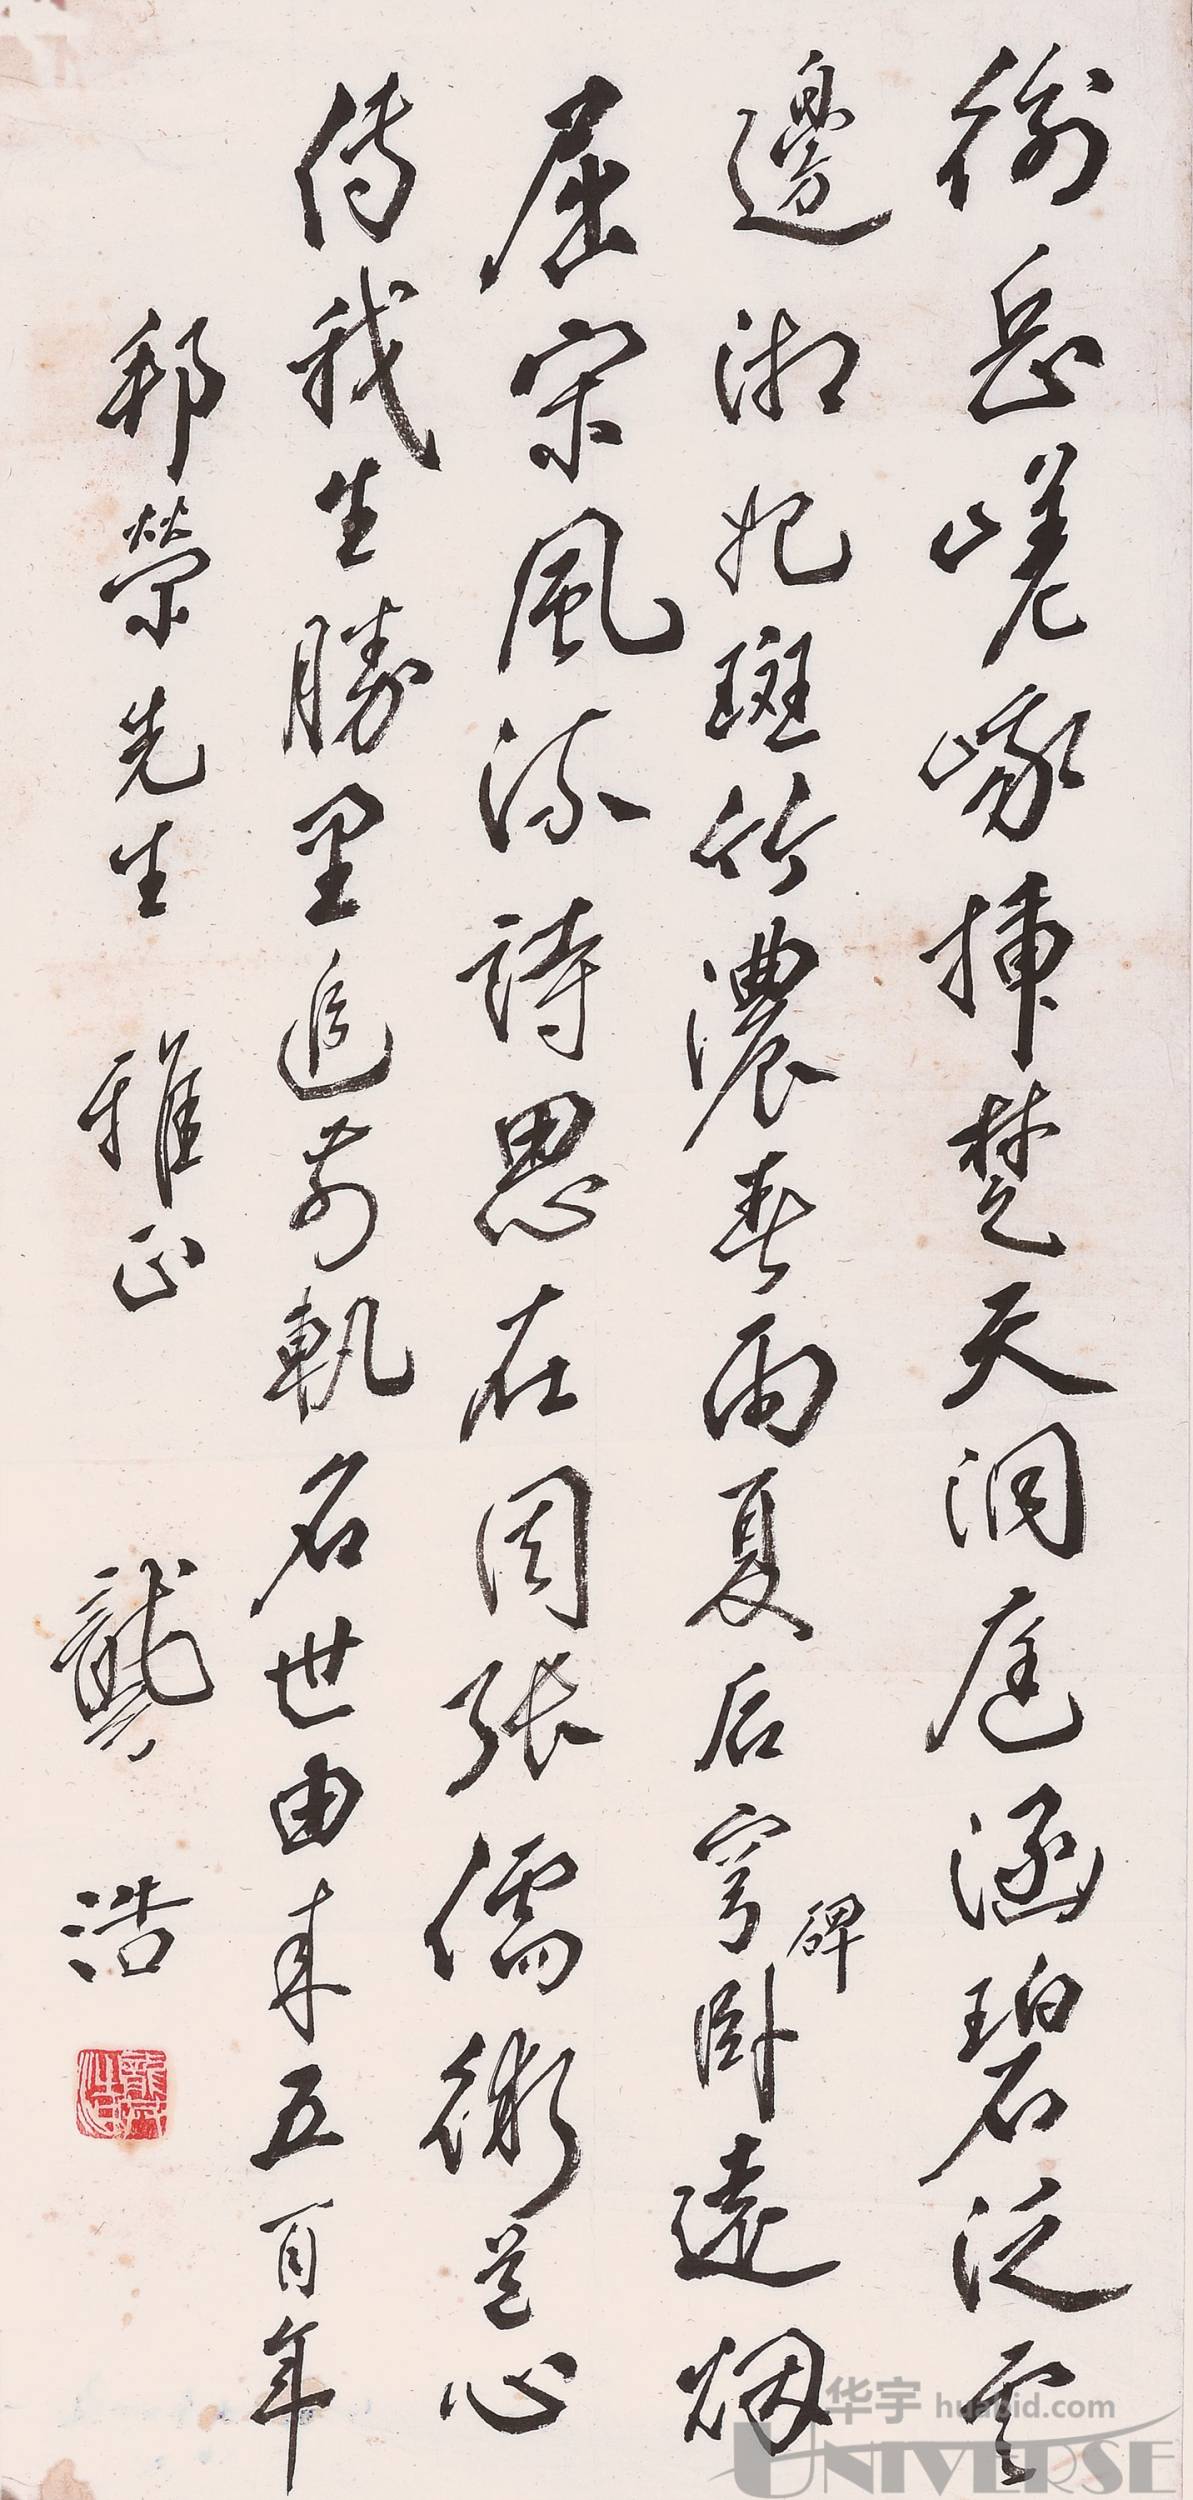 衡岳嵯峨插楚天洞庭涵碧泛雲
邊湘妃斑竹濃春雨夏后穹碑臥遠烟
屈宋風流詩思在周張儒術道心
傳我生勝里追前軌名世由來五百年
邦榮先生 雅正 龔浩
华宇 huabid.com
UNIVERSE